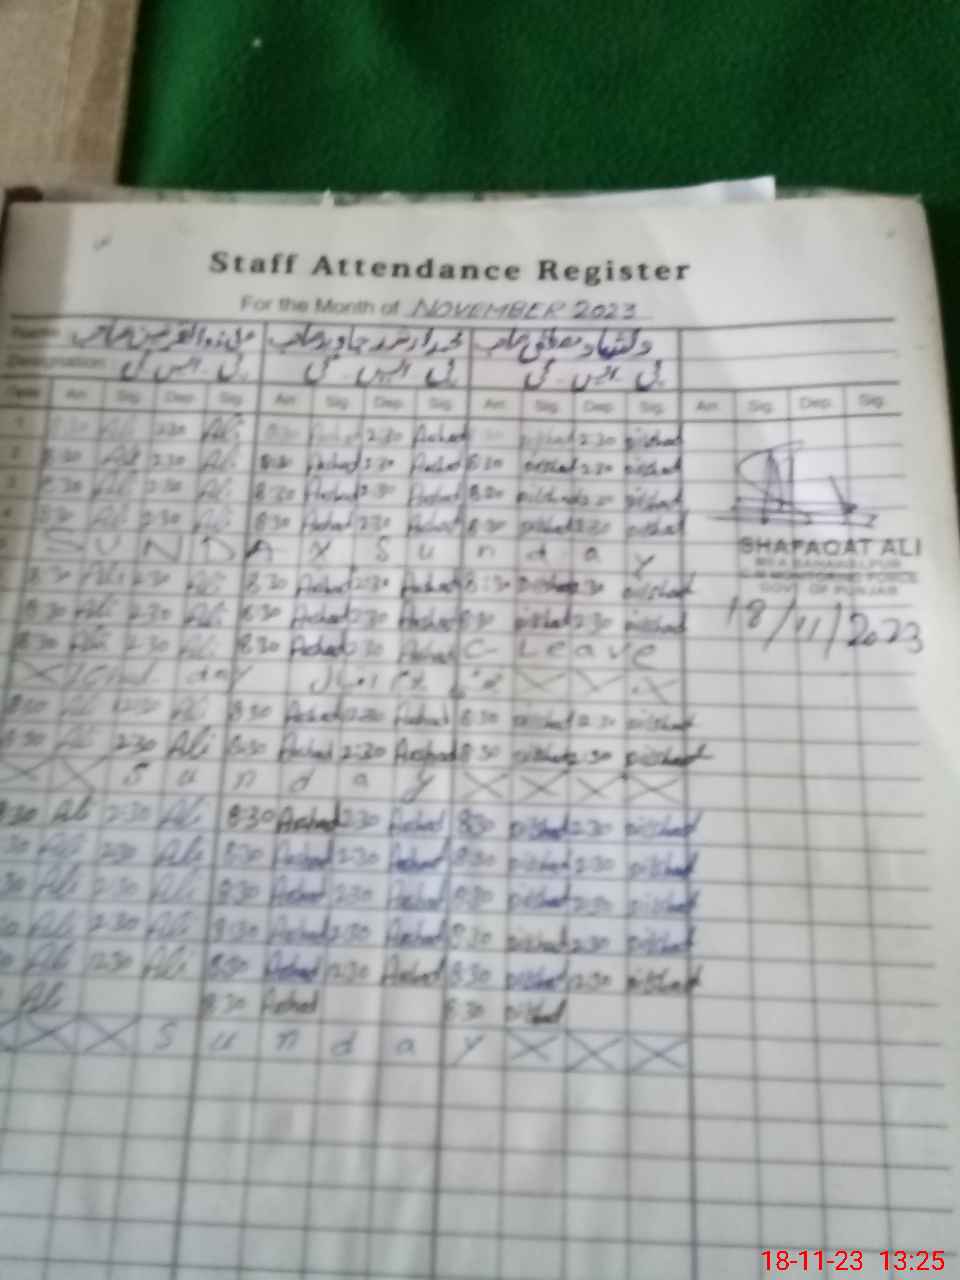 Staff Attendance Register
For the Month of NOVEMBER 2023
Name
Designation پی ایس ٹی پی ایس ٹی پی ایس ٹی
Date Arr. Sig. Dep. Sig. Arr. Sig. Dep. Sig. Arr. Sig. Dep. Sig. Arr. Sig. Dep. Sig.
1 8:30 Ali 2:30 Ali 8:30 Arshad 2:30 Arshad dilshad 2:30 dilshad
2 8:30 Ali 2:30 Ali 8:30 Arshad 2:30 Arshad 8:30 dilshad 2:30 dilshad
3 8:30 Ali 2:30 Ali 8:30 Arshad 2:30 Arshad 8:30 dilshad 2:30 dilshad
4 8:30 Ali 2:30 Ali 8:30 Arshad 2:30 Arshad 8:30 dilshad 2:30 dilshad
S U N D A Y S u n d a y
SHAFAQAT ALI
GOVT OF PUNJAB
18/11/2023
8:30 Ali 2:30 Ali 8:30 Arshad 2:30 Arshad 8:30 dilshad 2:30 dilshad
8:30 Ali 2:30 Ali 8:30 Arshad 2:30 Arshad 8:30 dilshad 2:30 dilshad
8:30 Ali 2:30 Ali 8:30 Arshad 2:30 Arshad C- Leave
day
8:30 Ali 12:30 Ali 8:30 Arshad 12:30 Arshad 8:30 dilshad 12:30 dilshad
8:30 Ali 2:30 Ali 8:30 Arshad 2:30 Arshad 8:30 dilshad 2:30 dilshad
S u n d a y
8:30 Ali 2:30 Ali 8:30 Arshad 2:30 Arshad 8:30 dilshad 2:30 dilshad
:30 Ali 2:30 Ali 8:30 Arshad 2:30 Arshad 8:30 dilshad 2:30 dilshad
30 Ali 2:30 Ali 8:30 Arshad 2:30 Arshad 8:30 dilshad 2:30 dilshad
30 Ali 2:30 Ali 8:30 Arshad 2:30 Arshad 8:30 dilshad 2:30 dilshad
Ali 12:30 Ali 8:30 Arshad 12:30 Arshad 8:30 dilshad 12:30 dilshad
Ali 8:30 Arshad 8:30 dilshad
S u n d a y
18-11-23 13:25